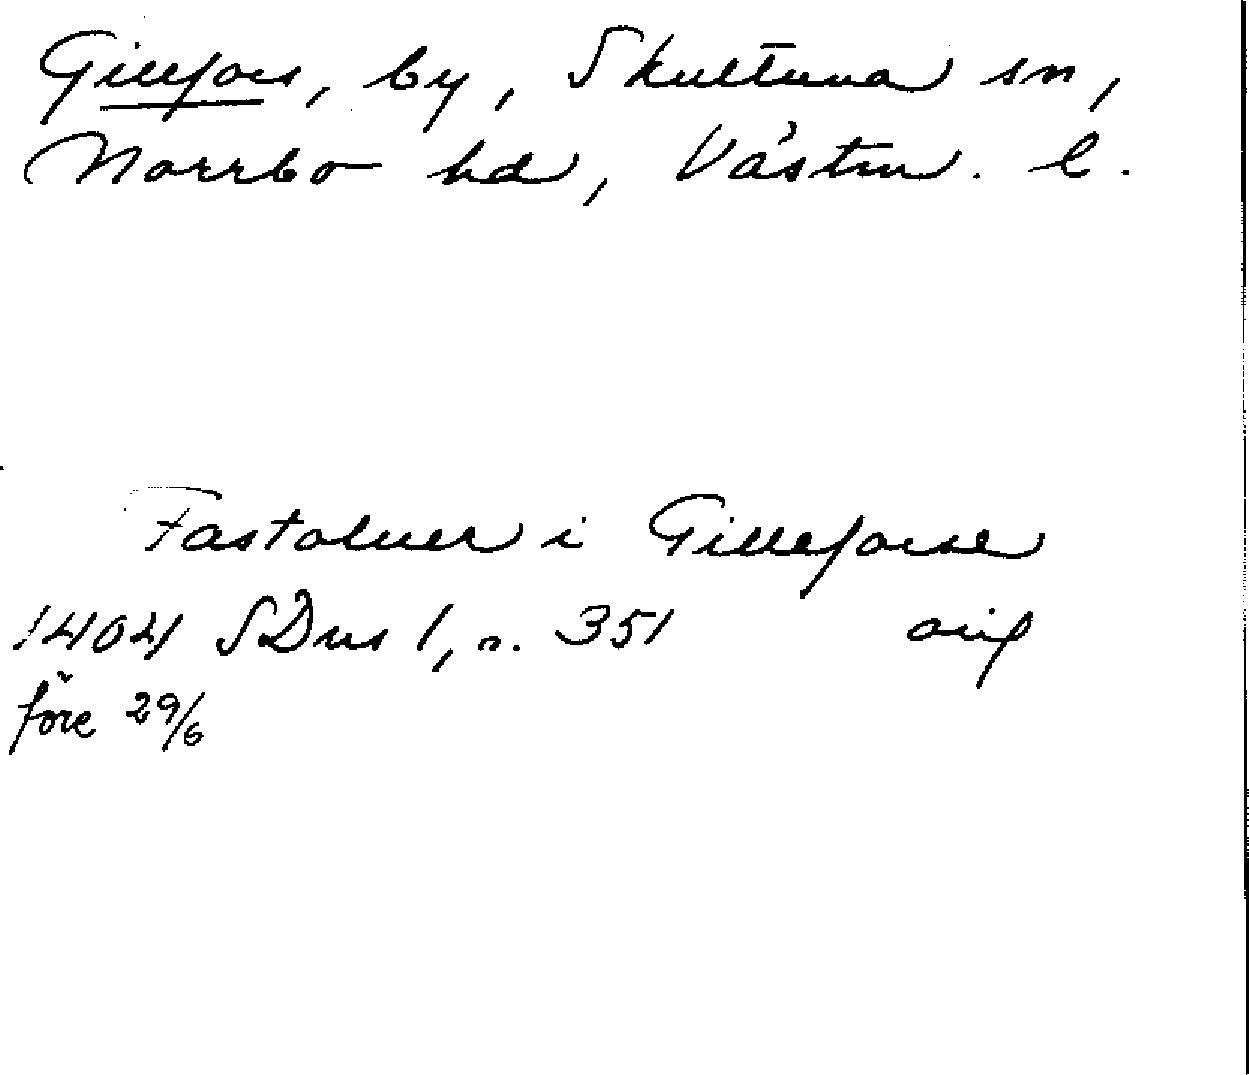 Gillfors, by, Skultuna sn,
Norrbo hd, Västm. l.
Fastoluer i Gilleforse
1404 SDns 1, n. 351 orig
före 29/6